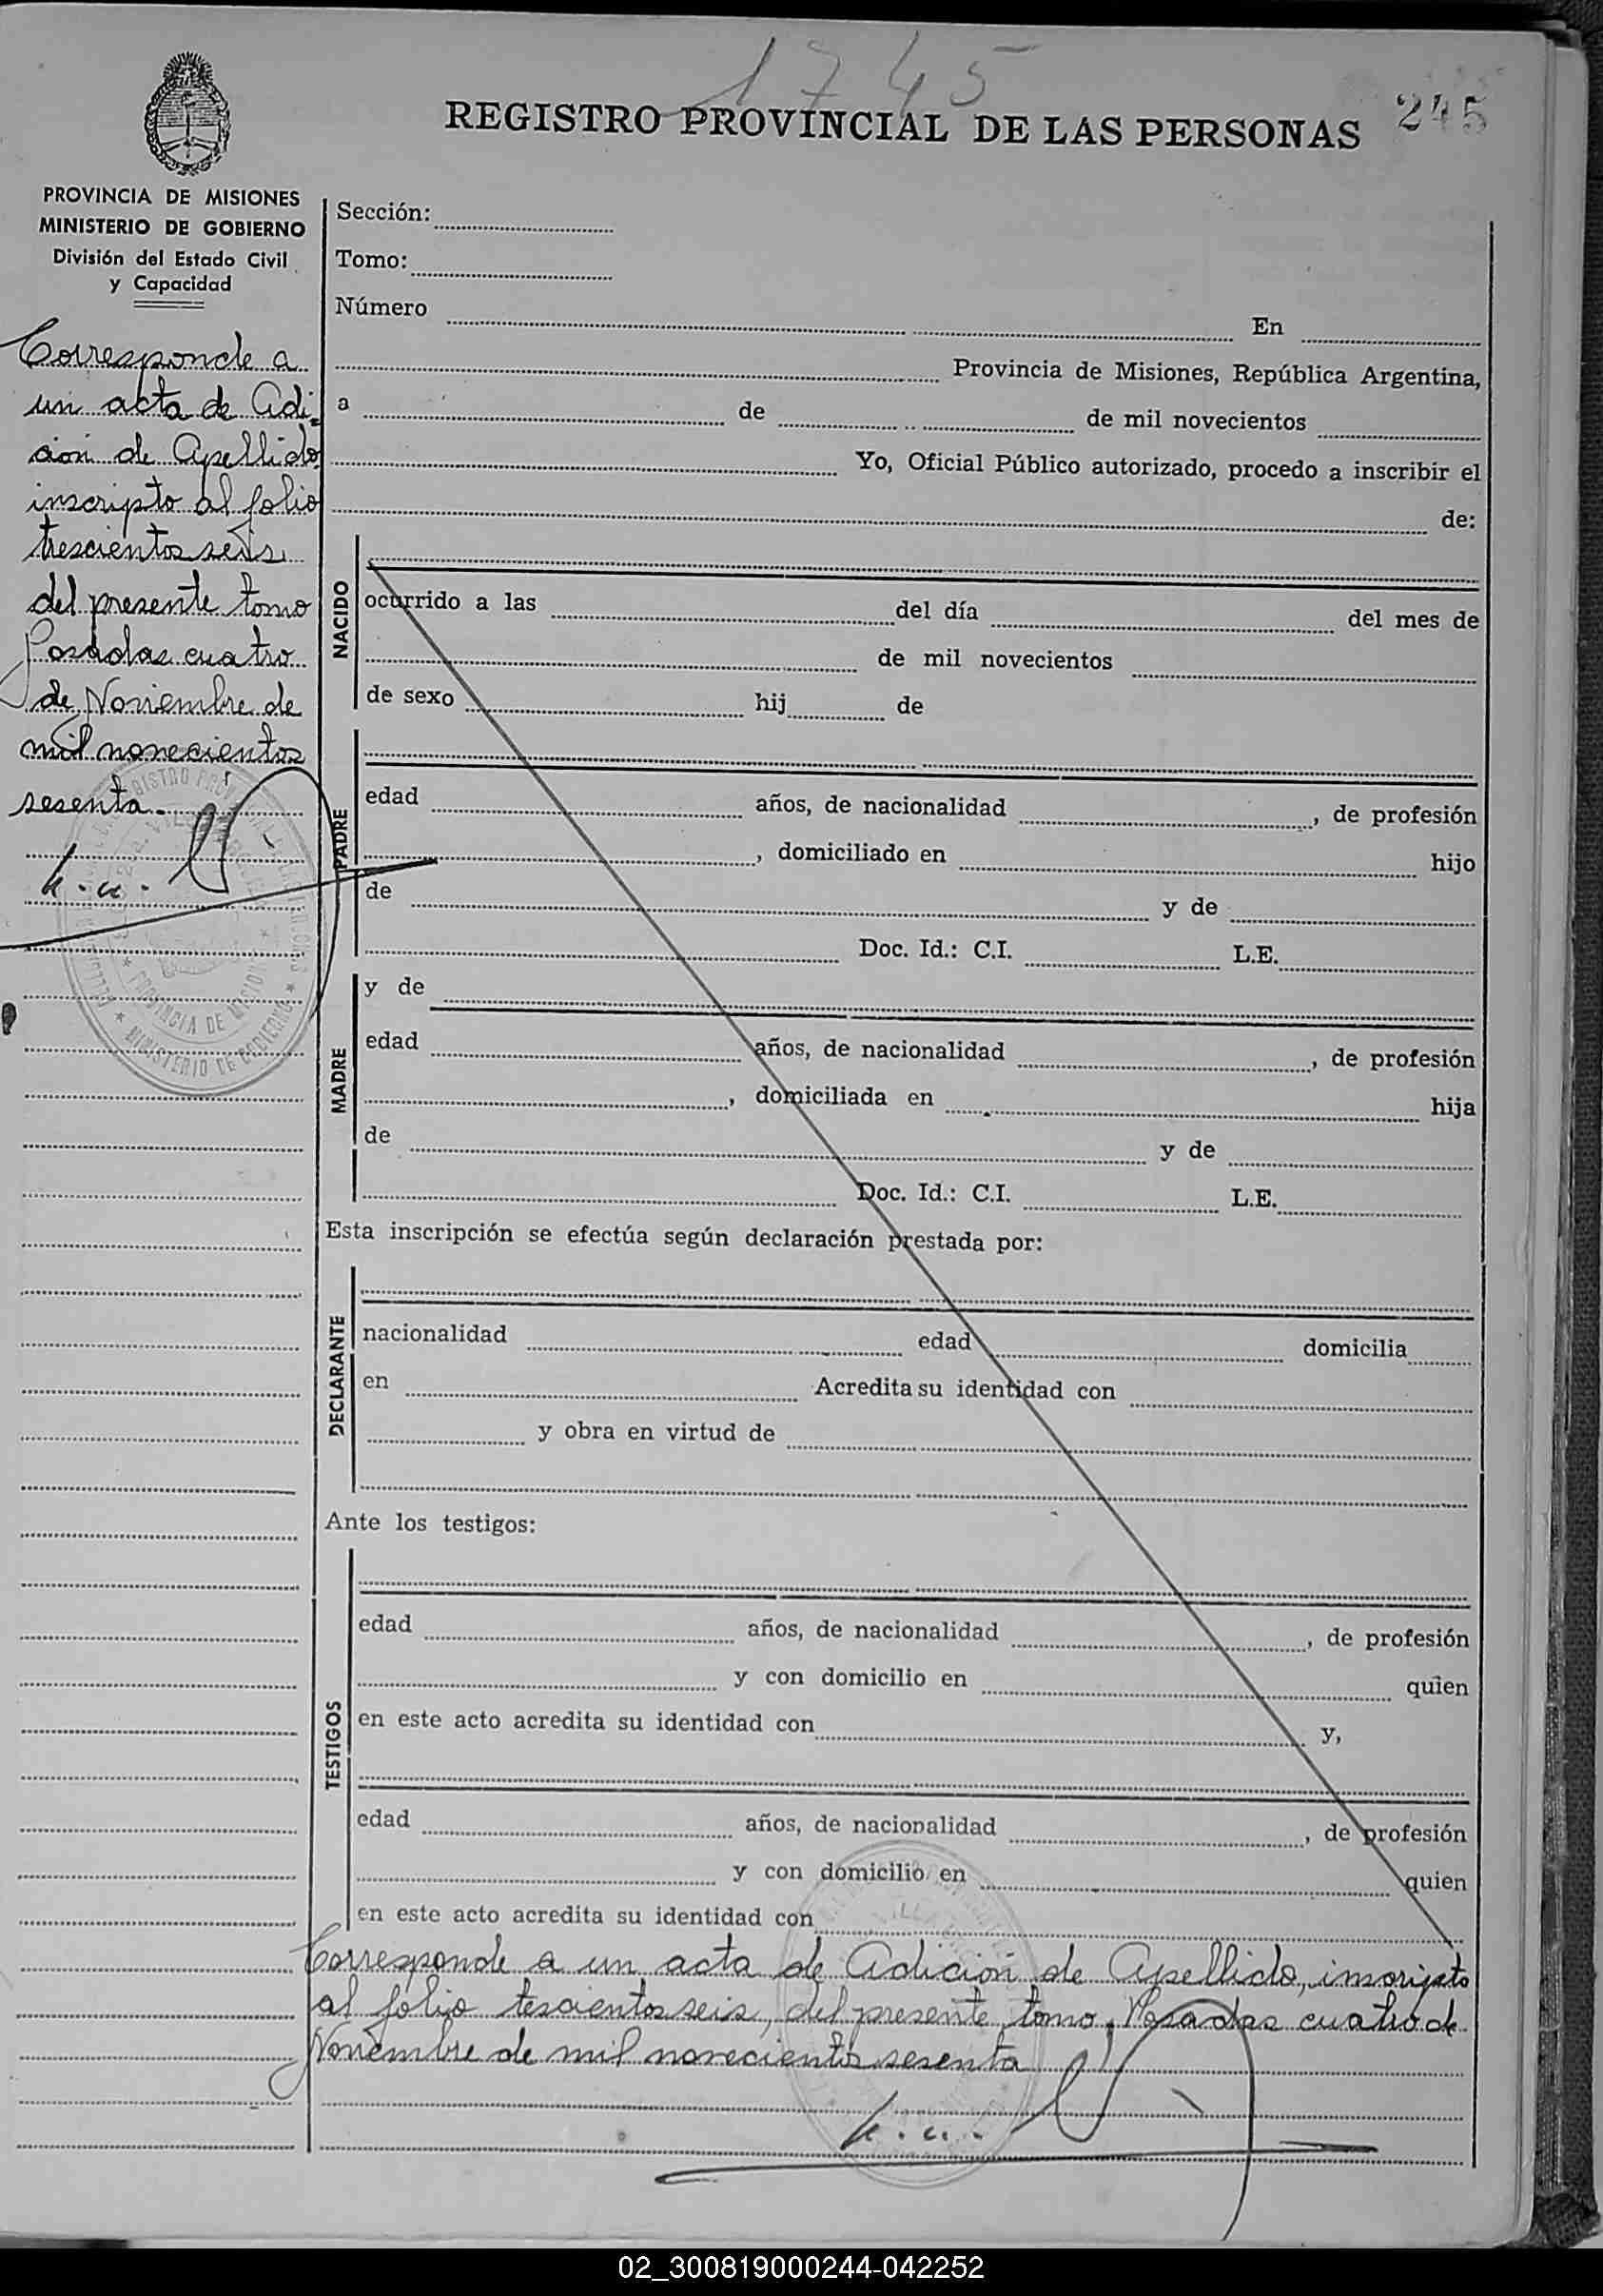 1745
REGISTRO PROVINCIAL DE LAS PERSONAS
245
PROVINCIA DE MISIONES
MINISTERIO DE GOBIERNO
División del Estado Civil
y Capacidad
Corresponde a
un acta de Adi-
ción de Apellido,
inscripto al folio
trescientos seis
del presente tomo
Posadas cuatro
de Noviembre de
mil novecientos
sesenta.
Sección:
Tomo:
Número En
Provincia de Misiones, República Argentina,
a de de mil novecientos
Yo, Oficial Público autorizado, procedo a inscribir el
de:
NACIDO
ocurrido a las del día del mes de
de mil novecientos
de sexo hij de
PADRE
edad años, de nacionalidad , de profesión
, domiciliado en hijo
de y de
Doc. Id.: C.I. L.E.
MADRE
y de
edad años, de nacionalidad , de profesión
, domiciliada en hija
de y de
Doc. Id.: C.I. L.E.
Esta inscripción se efectúa según declaración prestada por:
DECLARANTE
nacionalidad edad domicilia
en Acredita su identidad con
y obra en virtud de
Ante los testigos:
TESTIGOS
edad años, de nacionalidad , de profesión
y con domicilio en quien
en este acto acredita su identidad con y,
edad años, de nacionalidad , de profesión
y con domicilio en quien
en este acto acredita su identidad con
Corresponde a un acta de Adición de Apellido, inscripto
al folio tescientos seis, del presente tomo, Posadas cuatro de
Noviembre de mil novecientos sesenta
PROVINCIA DE MISIONES
MINISTERIO DE GOBIERNO
02_300819000244-042252